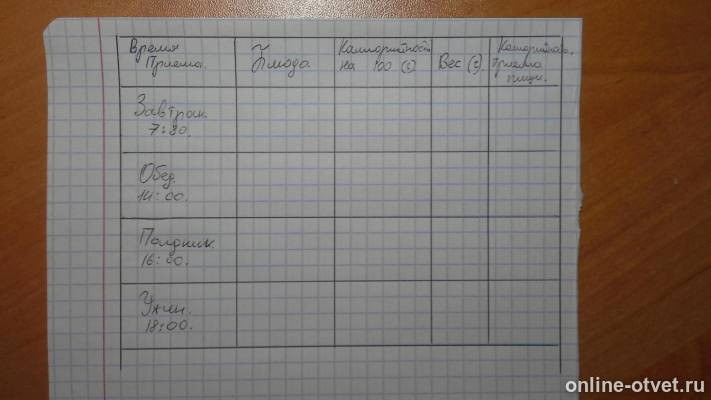 Время
Приема.
Блюдо
Каллорийность
на 100 (г)
Вес (г).
Приема
пищи.
Завтрак.
7:30.
Обед.
14:00.
Полдник.
16:00.
Ужин.
18:00.
online-otvet.ru